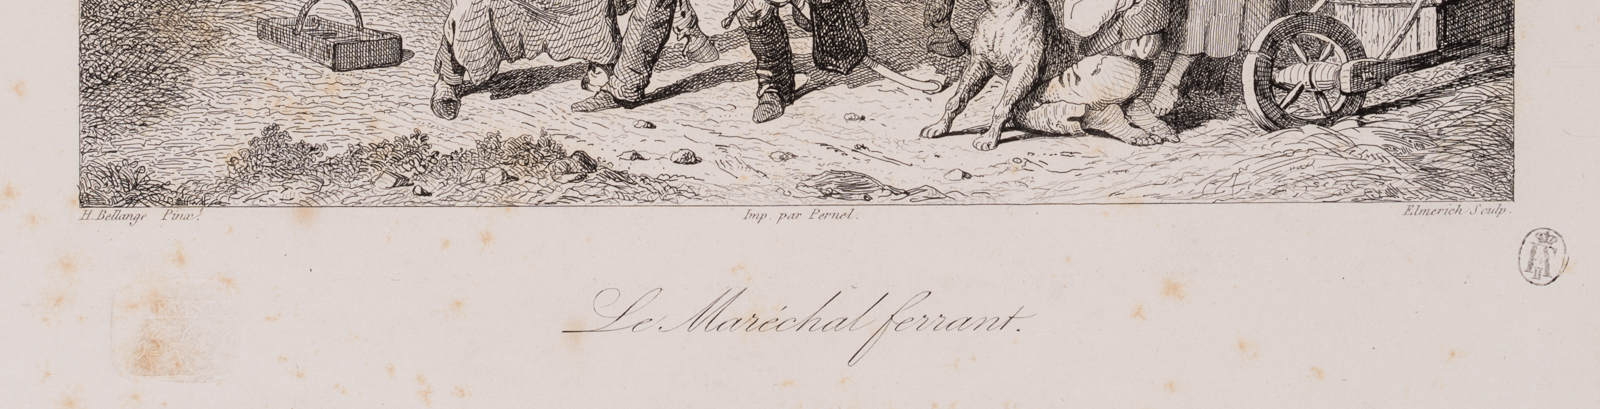 H. Bellangé Pinx!
Imp. par Pernel.
Elmerich Sculp.
Le Maréchal ferrant.